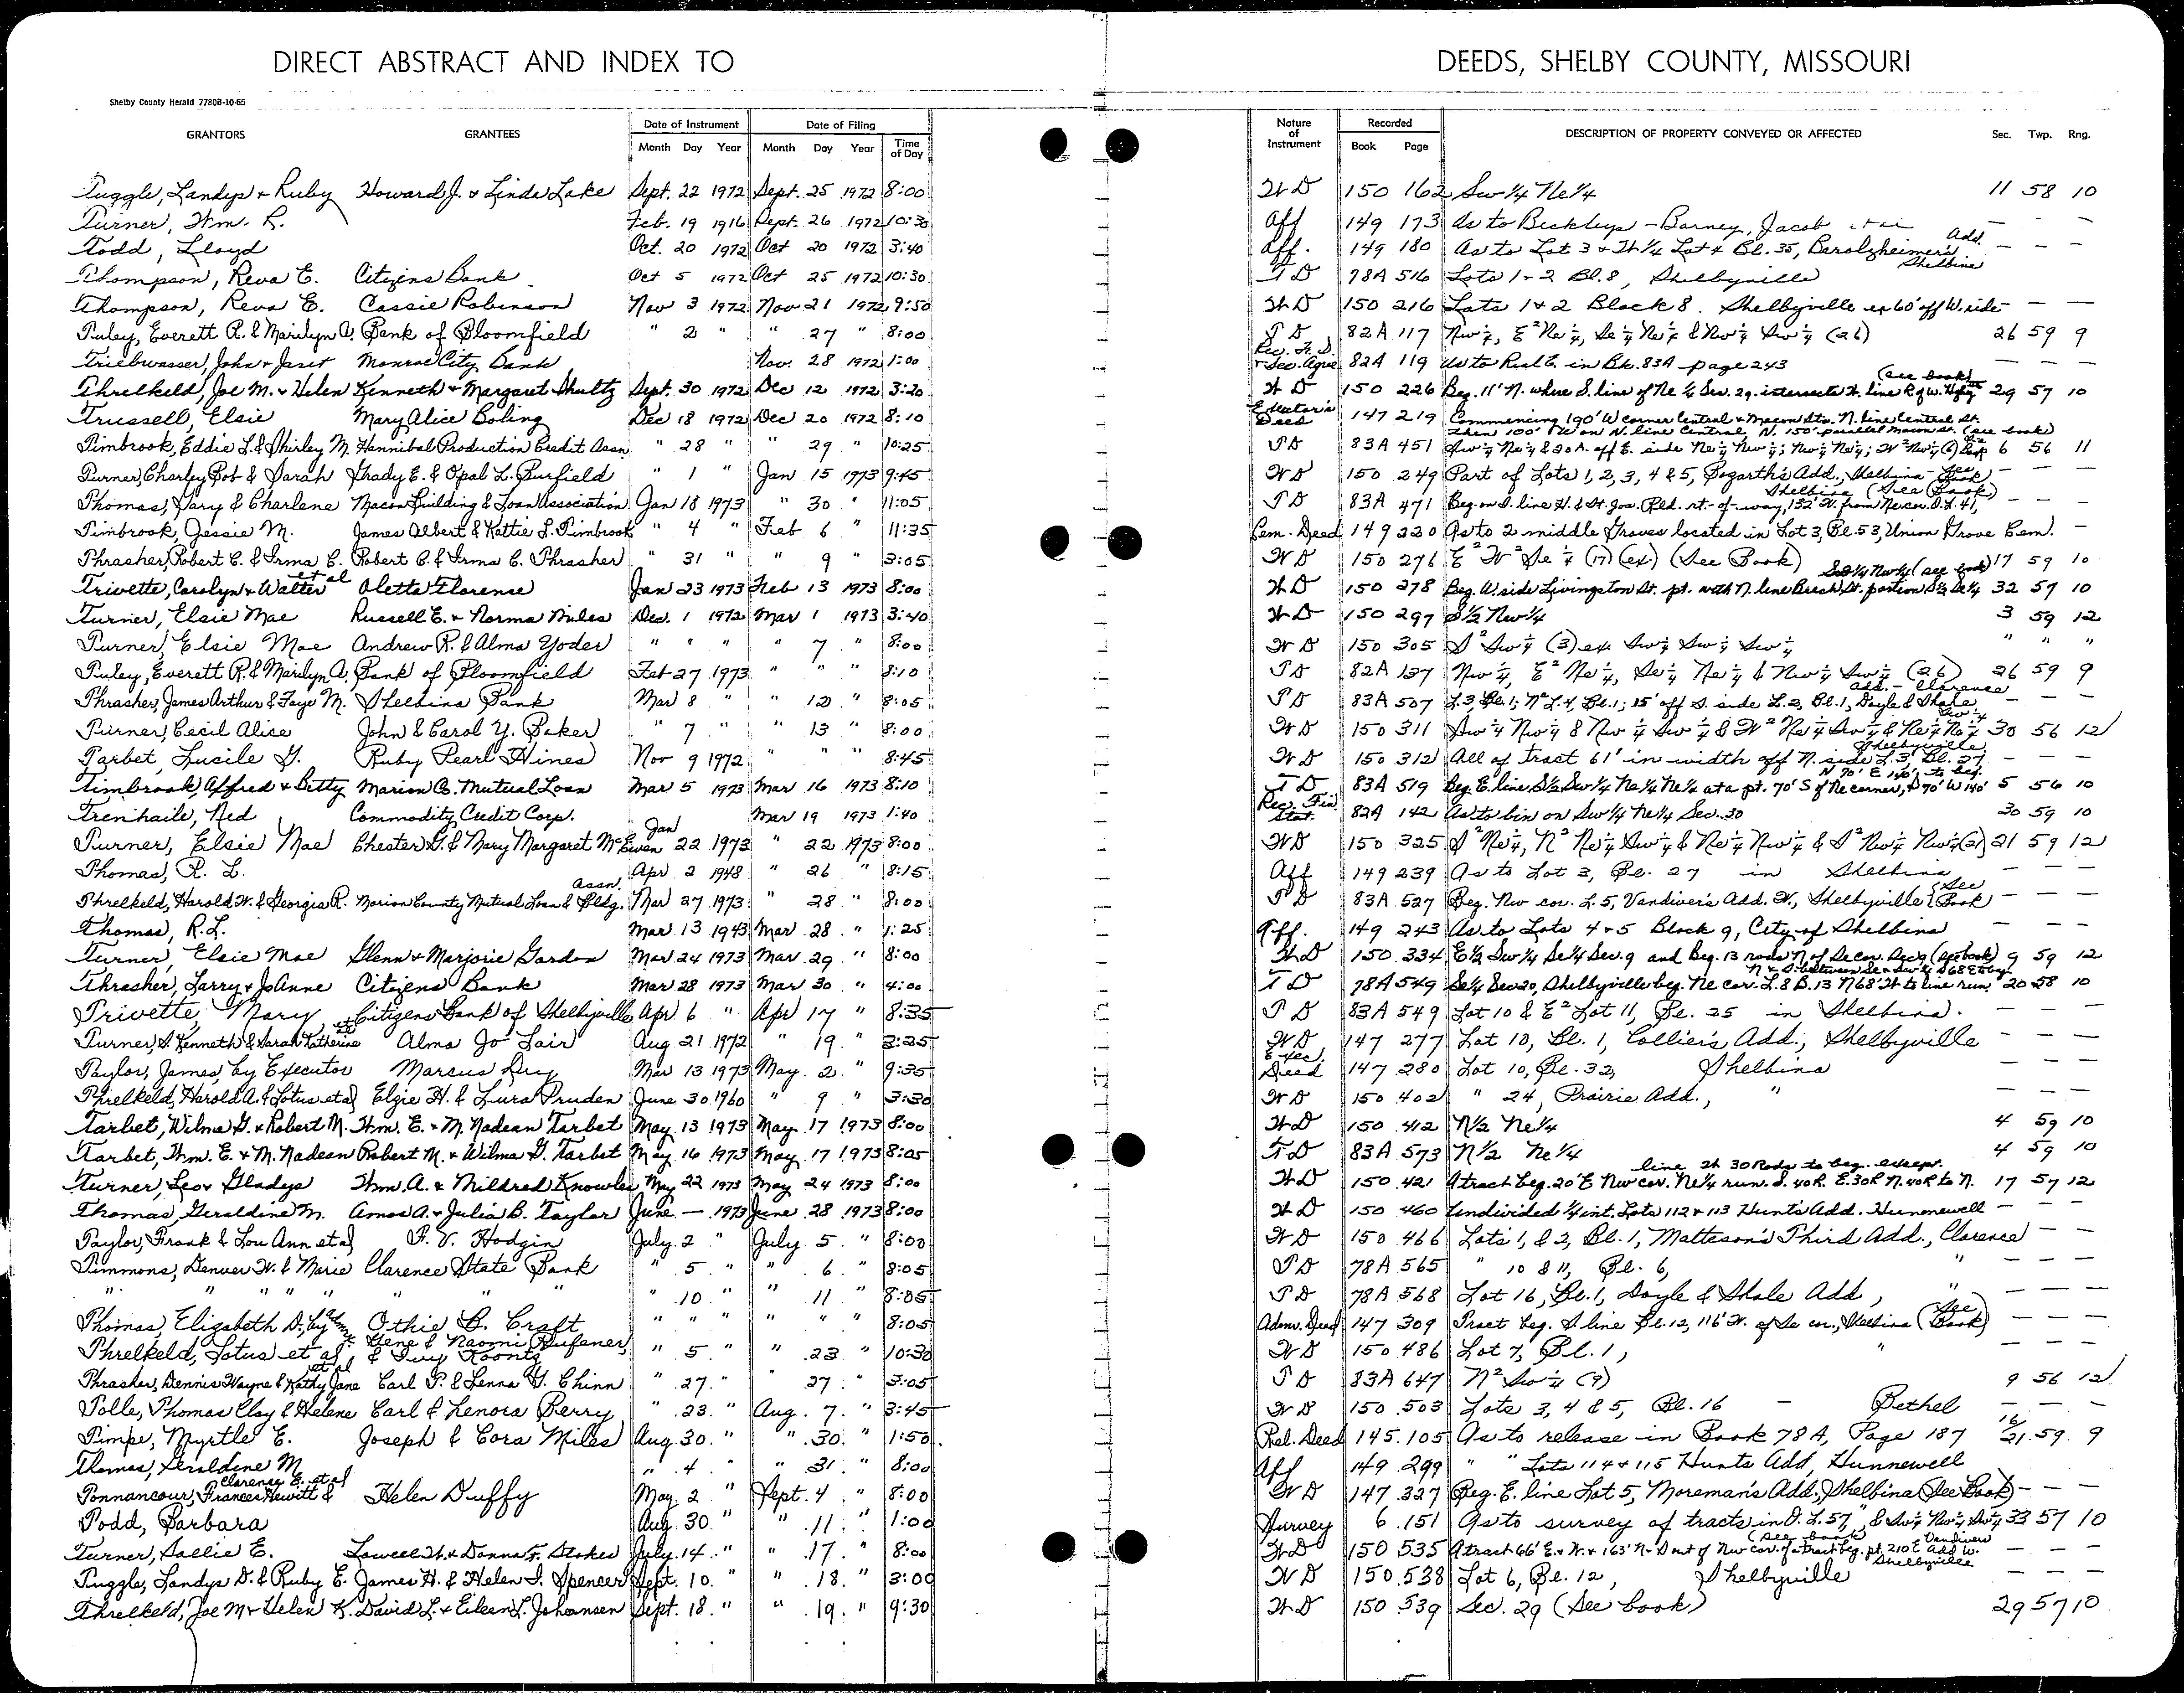 DIRECT ABSTRACT AND INDEX TO DEEDS, SHELBY COUNTY, MISSOURI
Shelby County Herald 7780B-10-65
GRANTORS GRANTEES Date of Instrument Month Day Year Date of Filing Month Day Year Time of Day Nature of Instrument Recorded Book Page DESCRIPTION OF PROPERTY CONVEYED OR AFFECTED Sec. Twp. Rng.
Tuggle, Landys & Ruby Howard J. & Linda Lake Sept. 22 1972 Sept. 25 1972 8:00 W D 150 162 Sw 1/4 Ne 1/4 11 58 10
Turner, Wm. R. Feb. 19 1916 Sept. 26 1972 10:30 Aff 149 173 As to Beckleys - Barney, Jacob - - -
Todd, Lloyd Oct. 20 1972 Oct 20 1972 3:40 Aff. 149 180 As to Lot 3 & W 1/4 Lot 4 Bl. 35, Berolzheimer's Add. Shelbina - - -
Thompson, Reva E. Citizens Bank Oct 5 1972 Oct 25 1972 10:30 T D 78A 516 Lots 1-2 Bl. 8, Shelbyville
Thompson, Reva E. Cassie Robinson Nov 3 1972 Nov 21 1972 9:50 W D 150 216 Lots 1 & 2 Block 8. Shelbyville ex 60' off W. side - - -
Tuley, Everett R. & Marilyn A. Bank of Bloomfield " 2 " " 27 " 8:00 T D 82A 117 Nw 1/4, E 2 Ne 1/4, Se 1/4 Ne 1/4 & Nw 1/4 Sw 1/4 (26) 26 59 9
Triebwasser, John & Janet Monroe City Bank Nov. 28 1972 1:00 Rec. F. S. & Sec. Agree 82A 119 As to Real E. in Bk. 83A page 243 - - -
Threlkeld, Joe M. & Helen Kenneth & Margaret Shultz Sept. 30 1972 Dec 12 1972 3:20 W D 150 226 Beg. 11' N. where S. line of Ne 1/4 Sec. 29. intersects W. line R of W. Hghy (see book) 29 57 10
Trussell, Elsie Mary Alice Boling Dec 18 1972 Dec 20 1972 8:10 Executor's Deed 147 219 Commencing 190' W corner Central & Macon Sts. N. line Central St. then 100' W on N. line Central N. 150' parallel Macon St. (see book)
Timbrook, Eddie L. & Shirley M. Hannibal Production Credit Assn " 28 " " 29 " 10:25 T D 83A 451 Sw 1/4 Ne 1/4 & 20 A. off E. side Ne 1/4 Nw 1/4; Nw 1/4 Ne 1/4; W 2 Nw 1/4 (6) See Book 6 56 11
Turner, Charley Bob & Sarah Grady E. & Opal L. Burfield " 1 " Jan 15 1973 9:45 W D 150 249 Part of Lots 1, 2, 3, 4 & 5, Bozarth's Add., Shelbina - See Book - - -
Thomas, Gary & Charlene Macon Building & Loan Association Jan 18 1973 " 30 " 11:05 T D 83A 471 Beg on S. line H. & St. Jos. Rld. rt.-of-way, 132' W. from Ne cor. O.L. 41, Shelbina (See Book) - - -
Timbrook, Jessie M. James Albert & Kattie L. Timbrook " 4 " Feb 6 " 11:35 Cem. Deed 149 220 As to 2 middle Graves located in Lot 3, Bl. 53, Union Grove Cem. -
Thrasher, Robert C. & Irma C. Robert C. & Irma C. Thrasher " 31 " " 9 " 3:05 W D 150 276 E 2 W 2 Se 1/4 (17) (ex) (See Book) 17 59 10
Trivette, Carolyn & Walter et al Oletta Florence Jan 23 1973 Feb 13 1973 8:00 W D 150 278 Beg. W. side Livingston St. pt. with N. line Breck St. portion S 1/2 Se 1/4 Se 1/4 Nw 1/4 (see book) 32 57 10
Turner, Elsie Mae Russell E. & Norma Miles Dec. 1 1972 Mar 1 1973 3:40 W D 150 297 S 1/2 Nw 1/4 3 59 12
Turner, Elsie Mae Andrew R. & Alma Yoder " " " " 7 " 8:00 W D 150 305 S 2 Sw 1/4 (3) ex Sw 1/4 Sw 1/4 Sw 1/4 " " "
Tuley, Everett R. & Marilyn A. Bank of Bloomfield Feb 27 1973 " " " 8:10 T D 82A 137 Nw 1/4, E 2 Ne 1/4, Se 1/4 Ne 1/4 & Nw 1/4 Sw 1/4 (26) 26 59 9
Thrasher, James Arthur & Faye M. Shelbina Bank Mar 8 " " 12 " 8:05 T D 83A 507 L. 3, Bl. 1; N 2 L. 4, Bl. 1; 15' off S. side L. 2, Bl. 1, Doyle & Shale Add. - Clarence - - -
Turner, Cecil Alice John & Carol Y. Baker " 7 " " 13 " 8:00 W D 150 311 Sw 1/4 Nw 1/4 & Nw 1/4 Sw 1/4 & W 2 Ne 1/4 Sw 1/4 & Ne 1/4 Ne 1/4 Sw 1/4 30 56 12
Tarbet, Lucile G. Ruby Pearl Hines Nov 9 1972 " " " 8:45 W D 150 312 All of Tract 61' in width off N. side L. 3, Bl. 27 Shelbyville - - -
Timbrook, Alfred & Betty Marion Co. Mutual Loan Mar 5 1973 Mar 16 1973 8:10 T D 83A 519 Beg. E. line S 1/2 Sw 1/4 Ne 1/4 Ne 1/4 at a pt. 70' S of Ne corner, S 70' W 140' N 70' E 140' to beg. 5 56 10
Trenhaile, Ned Commodity Credit Corp. Mar 19 1973 1:40 Rec. Fin. Stat. 82A 142 As to bin on Sw 1/4 Ne 1/4 Sec. 30 30 59 10
Turner, Elsie Mae Chester G. & Mary Margaret McEwen Jan 22 1973 " 22 1973 8:00 W D 150 325 S 2 Ne 1/4, N 2 Ne 1/4 Sw 1/4 & Ne 1/4 Nw 1/4 & S 2 Nw 1/4 Nw 1/4 (21) 21 59 12
Thomas, R. L. Apr 2 1948 " 26 " 8:15 Aff 149 239 As to Lot 3, Bl. 27 in Shelbina - - -
Threlkeld, Harold W. & Georgia R. Marion County Mutual Loan & Bldg. Assn. Mar 27 1973 " 28 " 8:00 T D 83A 527 Beg. Nw cor. L. 5, Vandiver's Add. W., Shelbyville (See Book - - -
Thomas, R.L. Mar 13 1943 Mar 28 " 1:25 Aff. 149 243 As to Lots 4 & 5 Block 9, City of Shelbina - - -
Turner, Elsie Mae Glenn & Marjorie Gordon Mar 24 1973 Mar. 29 " 8:00 W D 150 334 E 1/2 Sw 1/4 Se 1/4 Sec. 9 and Beg. 13 rods N of Se cor. Sec 9 (see book) 9 59 12
Thrasher, Larry & JoAnne Citizens Bank Mar 28 1973 Mar. 30 " 4:00 T D 78A 549 Se 1/4 Sec 20, Shelbyville beg. Ne cor. L. 8 B. 13 N 68' W to line run. 20 58 10
Trivette, Mary Citizens Bank of Shelbyville Apr 6 " Apr 17 " 8:35 T D 83A 549 Lot 10 & E 2 Lot 11, Bl. 25 in Shelbina. - - -
Turner, S. Kenneth & Sarah Katherine et al Alma Jo Lair Aug 21 1972 " 19 " 2:25 W D 147 277 Lot 10, Bl. 1, Collier's Add., Shelbyville - - -
Taylor, James, by Executor Marcus Guy Mar 13 1973 May 2 " 9:35 Exec. Deed 147 280 Lot 10, Bl. 32, Shelbina - - -
Threlkeld, Harold A. & Lotus et al Elgie H. & Lura Pruden June 30 1960 " 9 " 3:30 W D 150 402 " 24, Prairie Add., " - - -
Tarbet, Wilma G. & Robert M. Wm. E. & M. Nadean Tarbet May 13 1973 May 17 1973 8:00 W D 150 412 N 1/2 Ne 1/4 4 59 10
Tarbet, Wm. E. & M. Nadean Robert M. & Wilma G. Tarbet May 16 1973 May 17 1973 8:05 T D 83A 573 N 1/2 Ne 1/4 4 59 10
Turner, Leo & Gladys Wm. A. & Mildred Knowles May 22 1973 May 24 1973 8:00 W D 150 421 A tract beg. 20' E Nw cor. Ne 1/4 run. S. 40 R. E. 30 R N. 40 R to N. line W 30 Rods to beg. except. 17 57 12
Thomas, Geraldine M. Amos A. & Julia B. Taylor June - 1973 June 28 1973 8:00 W D 150 460 Undivided 1/4 int. Lots 112 & 113 Hunts Add. Hunnewell - - -
Taylor, Frank & Lou Ann et al F. V. Hodgin July 2 " July 5 " 8:00 W D 150 466 Lots 1, & 2, Bl. 1, Matteson's Third Add., Clarence - - -
Timmons, Denver W. & Marie Clarence State Bank " 5 " " 6 " 8:05 T D 78A 565 " 10 & 11, Bl. 6, " - - -
" " " " " " " " " 10 " " 11 " 8:05 T D 78A 568 Lot 16, Bl. 1, Doyle & Shale Add, " - - -
Thomas, Elizabeth D., by Admr. Othie B. Craft " " " " " " 8:05 Admr. Deed 147 309 Tract beg. S line Bl. 12, 116' W. of Se cor., Shelbina (See Book) - - -
Threlkeld, Lotus et al Gene & Naomi Bufener & Guy Koontz " 5 " " 23 " 10:30 W D 150 486 Lot 7, Bl. 1, " - - -
Thrasher, Dennis Wayne & Kathy Jane et al Carl P. & Lenna G. Chinn " 27 " " 27 " 3:05 T D 83A 647 N 2 Sw 1/4 (9) 9 56 12
Tolle, Thomas Clay & Helene Carl & Lenora Berry " 23 " Aug. 7 " 3:45 W D 150 503 Lots 3, 4 & 5, Bl. 16 - Bethel - - -
Timpe, Myrtle E. Joseph & Cora Miles Aug. 30 " " 30 " 1:50 Rel. Deed 145 105 As to release in Book 78 A, Page 187 16/21 59 9
Thomas, Geraldine M. " 4 " " 31 " 8:00 Aff 149 299 " " Lots 114 & 115 Hunts Add, Hunnewell
Tonnancour, Frances Hewitt & Clarence E. et al Helen Duffy May 2 " Sept. 4 " 8:00 W D 147 327 Beg. E. line Lot 5, Moreman's Add., Shelbina (See Book) - - -
Todd, Barbara Aug. 30 " " 11 " 1:00 Survey 6 151 As to survey of tracts in O. L. 57, & Sw 1/4 Nw 1/4 Sw 1/4 33 57 10
Turner, Sallie E. Lowell W. & Donna F. Stokes July 14 " " 17 " 8:00 W D 150 535 A tract 66' E. & W. & 163' N - S out of Nw cor. of a tract beg. pt. 210' E (see book) Vandivers Add W. Shelbyville - - -
Tuggle, Landys D. & Ruby E. James H. & Helen I. Spencer Sept. 10 " " 18 " 3:00 W D 150 538 Lot 6, Bl. 12, Shelbyville - - -
Threlkeld, Joe M & Helen K. David L. & Eileen L. Johansen Sept. 18 " " 19 " 9:30 W D 150 539 Sec. 29 (See book) 29 57 10